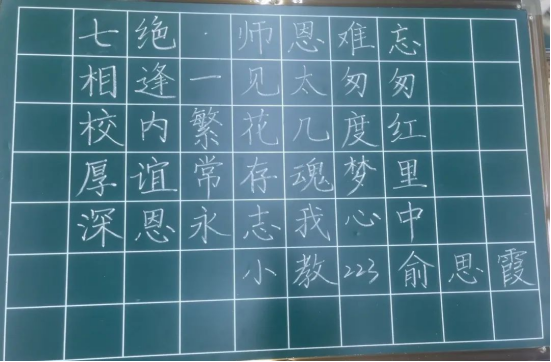 七绝·师恩难忘
相逢一见太匆匆
校内繁花几度红
厚谊常存魂梦里
深恩永志我心中
小教223俞思霞